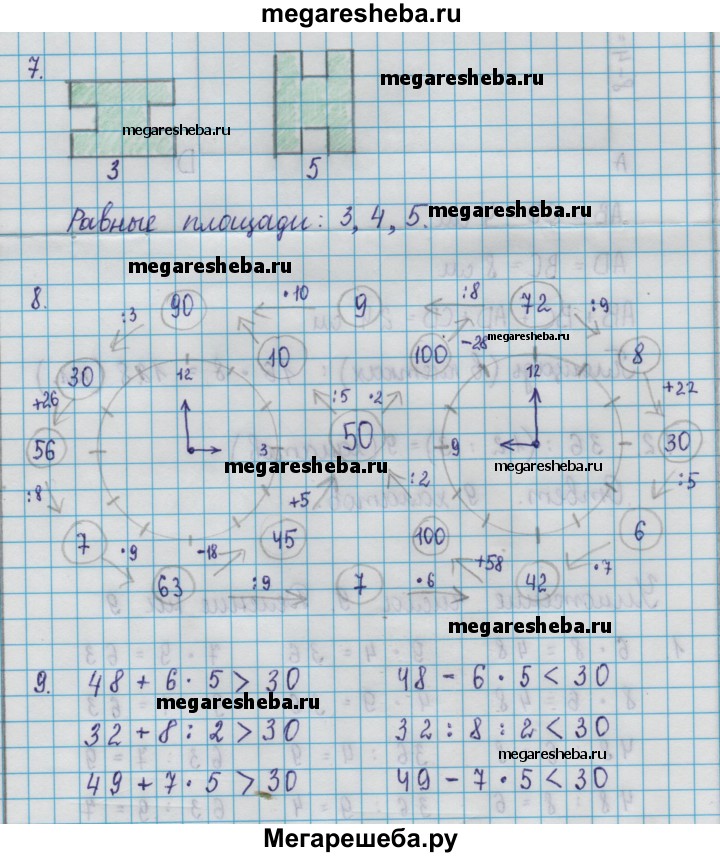 megaresheba.ru
7.
megaresheba.ru
megaresheba.ru
3
5
Равные площади: 3, 4, 5.
megaresheba.ru
megaresheba.ru
8.
90
·10
9
:8
72
:9
:3
10
100
-28
8
megaresheba.ru
30
12
12
+26
:5
·2
+22
56
3
50
9
30
megaresheba.ru
megaresheba.ru
:8
+5
:2
:5
7
·9
-18
45
100
+58
6
63
:9
7
·6
42
·7
megaresheba.ru
9.
48 + 6 · 5 > 30
48 - 6 · 5 < 30
megaresheba.ru
32 + 8 : 2 > 30
32 : 8 : 2 < 30
megaresheba.ru
49 + 7 · 5 > 30
49 - 7 · 5 < 30
Мегарешеба.ру